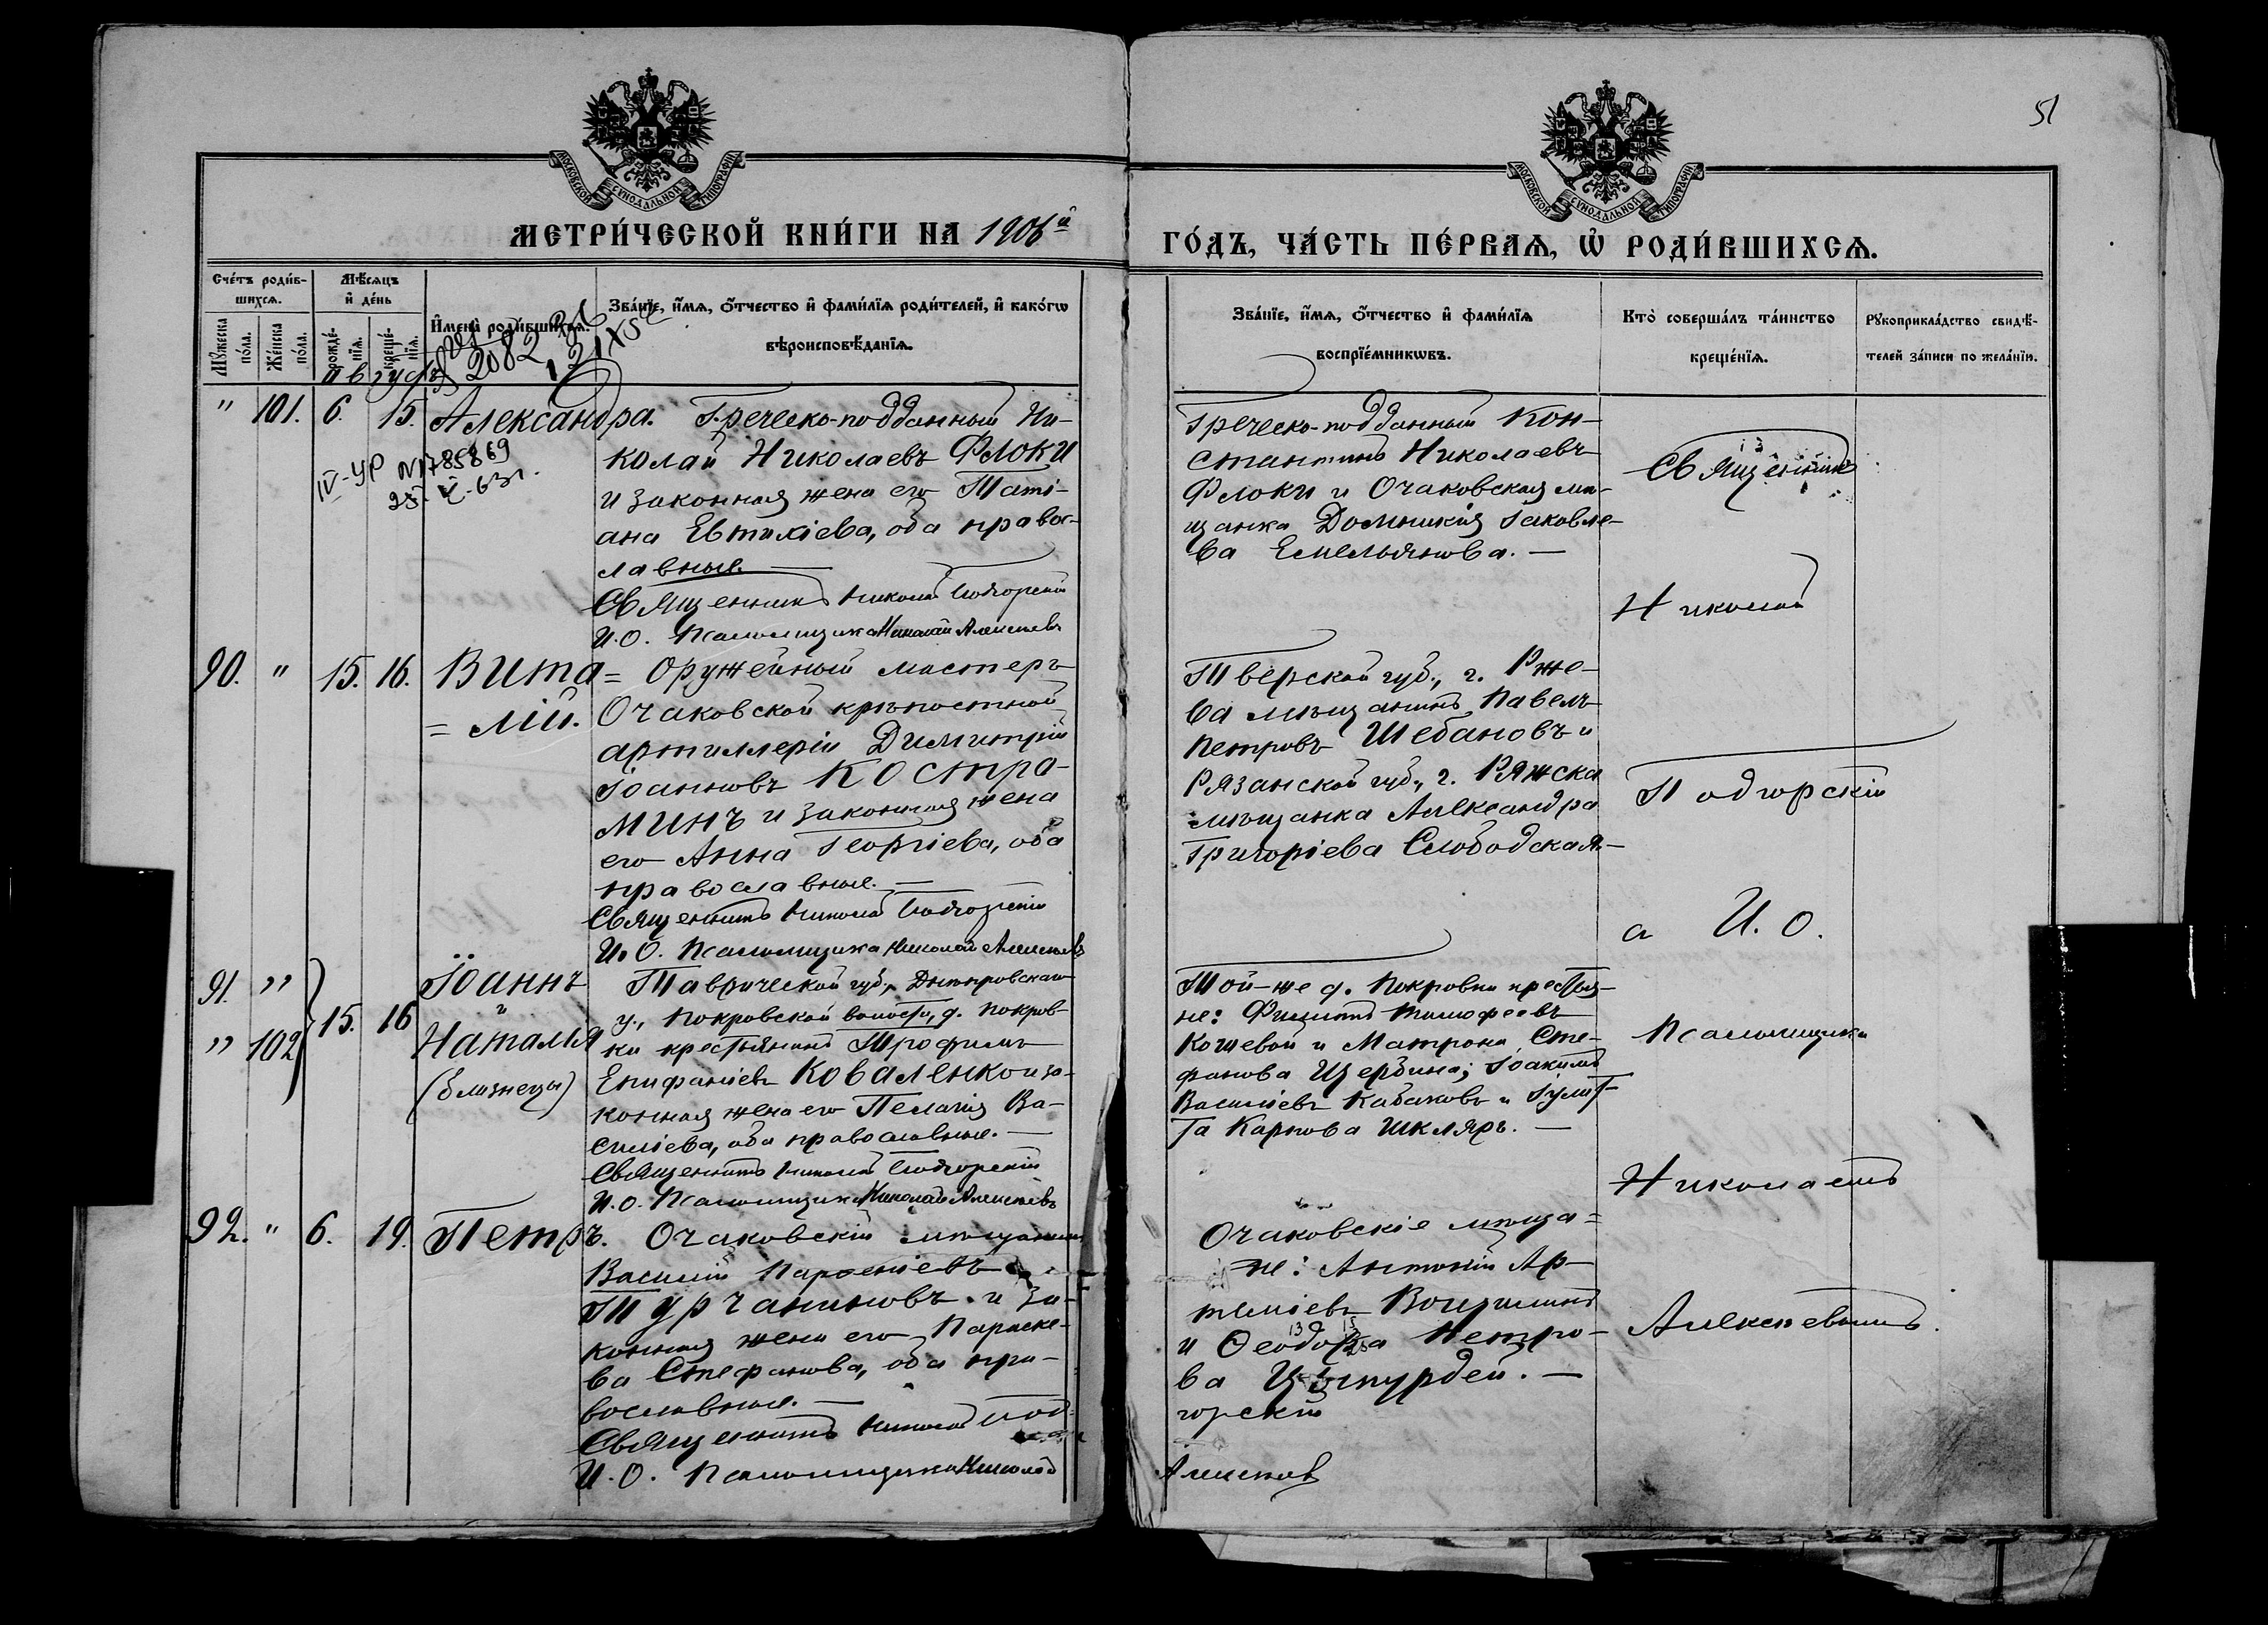 51
МОСКОВСКОЙ СУНОДАЛЬНОЙ ТИПОГРАФІИ
МОСКОВСКОЙ СУНОДАЛЬНОЙ ТИПОГРАФІИ
МЕТРИ́ЧЕСКОЙ КНИ́ГИ НА 1906й
ГО́ДЪ, ЧА́СТЬ ПЕ́РВАѦ, Ѡ҆ РОДИ́ВШИХСѦ.
Сче́тъ роди́вшихсѧ.
Мѣ́сѧцъ и҆ де́нь
Мꙋ́жеска по́ла.
Же́нска по́ла.
рожде́нїѧ.
креще́нїѧ.
И҆мена̀ роди́вшихсѧ.
Зва́нїе, и҆́мѧ, ѻ҆́тчество и҆ фами́лїѧ роди́телей, и҆ како́гѡ
вѣроисповѣ́данїѧ.
Зва́нїе, и҆́мѧ, ѻ҆́тчество и҆ фами́лїѧ
воспрїе́мникѡвъ.
Кто̀ соверша́лъ та́инство
креще́нїѧ.
Рꙋкоприкла́дство свидѣ́-
телей за́писи по жела́нїю.
Августъ
2082
" 101. 6. 15. Александра.
IV-УР N785869
Греческо-подданный Ни-
колай Николаевъ Флоки
и законная жена его Таті-
ана Евтихіева, оба право-
славные. —
Священникъ Николай Подгорскій
И.О. Псаломщика Николай Алексѣевъ
Греческо-подданный Кон-
стантинъ Николаевъ
Флоки и Очаковская мѣ-
щанка Домникія Іаковле-
ва Емельянова. —
90. " 15. 16. Вита=
=лій.
Оружейный мастеръ
Очаковской крѣпостной
артиллеріи Димитрій
Іоанновъ Костра-
минъ и законная жена
его Анна Георгіева, оба
православные. —
Священникъ Николай Подгорскій
И.О. Псаломщика Николай Алексѣевъ
Тверской губ., г. Рже-
ва мѣщанинъ Павелъ
Петровъ Шебановъ и
Рязанской губ., г. Ряжска
мѣщанка Александра
Григоріева Слободская. —
91. " Іоаннъ
и
" 102 15. 16 Наталія
(близнецы)
Таврической губ., Днѣпровскаго
у., Покровской волости, д. Покров-
ки крестьянинъ Трофимъ
Епифаніевъ Коваленко и за-
конная жена его Пелагія Ва-
силіева, оба православные. —
Священникъ Николай Подгорскій
И.О. Псаломщика Николай Алексѣевъ
Той-же д. Покровки крестья-
не: Филиппъ Тимофеевъ
Кошевой и Матрона Сте-
фанова Щербина; Іоакимъ
Василіевъ Кабаковъ и Іулит-
та Карпова Шкляръ. —
92. " 6. 19. Петръ.
Очаковскій мѣщанинъ
Василій Парѳеніевъ
Турчаниновъ и за-
конная жена его Параске-
ва Стефанова, оба пра-
вославные. —
Священникъ Николай Под-
горскій
И.О. Псаломщика Николай
Алексѣевъ
Очаковскіе мѣща=
не: Антоній Ар-
теміевъ
и Ѳеодора Петро-
ва
Священникъ
Николай
Подгорскій
а И.О.
Псаломщика
Николаемъ
Алексѣевымъ.